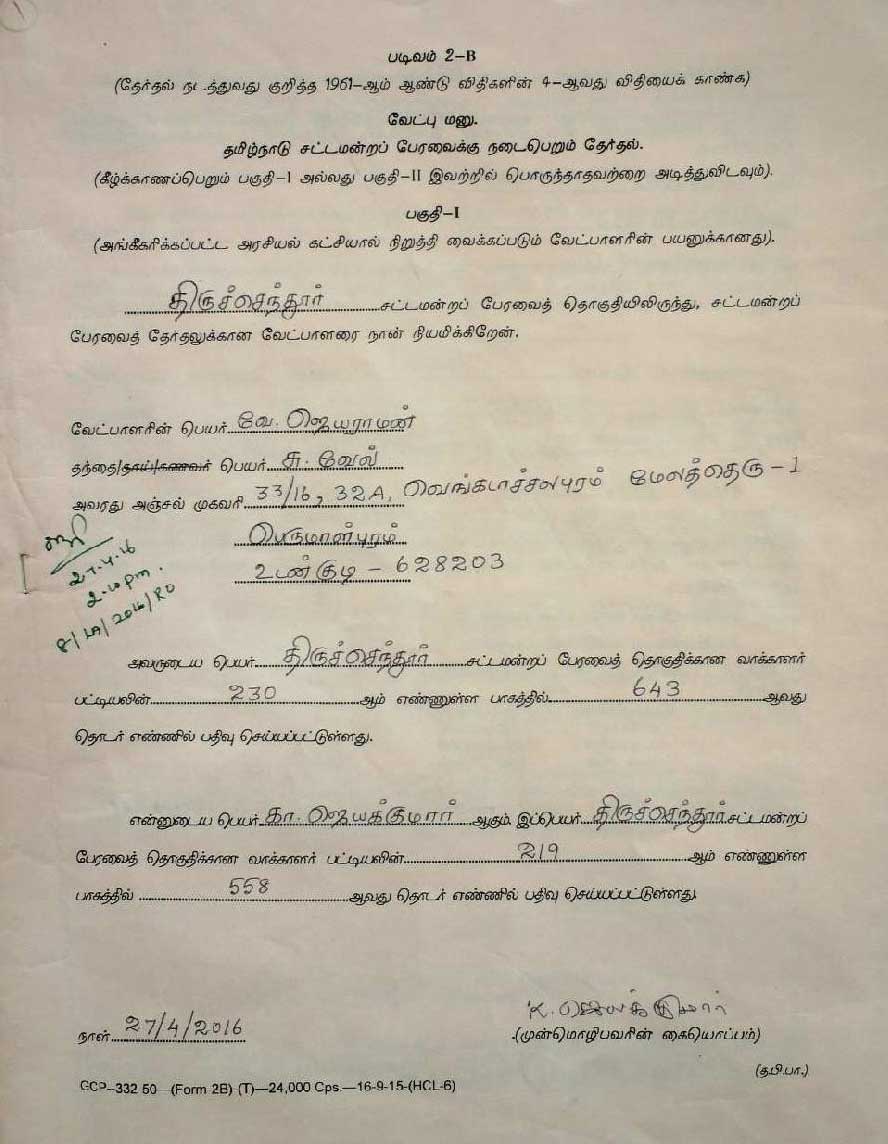 படிவம் 2-B
(தேர்தல் நடத்துவது குறித்த 1961-ஆம் ஆண்டு விதிகளின் 4-ஆவது விதியைக் காண்க)
வேட்பு மனு.
தமிழ்நாடு சட்டமன்றப் பேரவைக்கு நடைபெறும் தேர்தல்.
(கீழ்க்காணப்பெறும் பகுதி-I அல்லது பகுதி-II இவற்றில் பொருந்தாதவற்றை அடித்துவிடவும்).
பகுதி-I
(அங்கீகரிக்கப்பட்ட அரசியல் கட்சியால் நிறுத்தி வைக்கப்படும் வேட்பாளரின் பயனுக்கானது).
திருச்செந்தூர் சட்டமன்றப் பேரவைத் தொகுதியிலிருந்து, சட்டமன்றப்
பேரவைத் தேர்தலுக்கான வேட்பாளரை நான் நியமிக்கிறேன்.
வேட்பாளரின் பெயர் வே. ஜெயராமன்
தந்தை/தாய்/கணவர் பெயர் சு. வேல்
அவரது அஞ்சல் முகவரி 33/16, 32A, வெங்கடாச்சலபுரம் மேலத்தெரு - 1
பெருமாள்புரம்
உடன்குடி - 628203
27-4-16
2-10 pm.
8/LA/2016/RO
அவருடைய பெயர் திருச்செந்தூர் சட்டமன்றப் பேரவைத் தொகுதிக்கான வாக்காளர்
பட்டியலின் 230 ஆம் எண்ணுள்ள பாகத்தில் 643 ஆவது
தொடர் எண்ணில் பதிவு செய்யப்பட்டுள்ளது.
என்னுடைய பெயர் கா. ஜெயக்குமார் ஆகும். இப்பெயர் திருச்செந்தூர் சட்டமன்றப்
பேரவைத் தொகுதிக்கான வாக்காளர் பட்டியலின் 219 ஆம் எண்ணுள்ள
பாகத்தில் 558 ஆவது தொடர் எண்ணில் பதிவு செய்யப்பட்டுள்ளது.
K. ஜெயக்குமார்
நாள் 27/4/2016
(முன்மொழிபவரின் கையொப்பம்)
(த.பி.பா.)
GCP-332 50 (Form 2B) (T)—24,000 Cps.—16-9-15-(HCL-6)